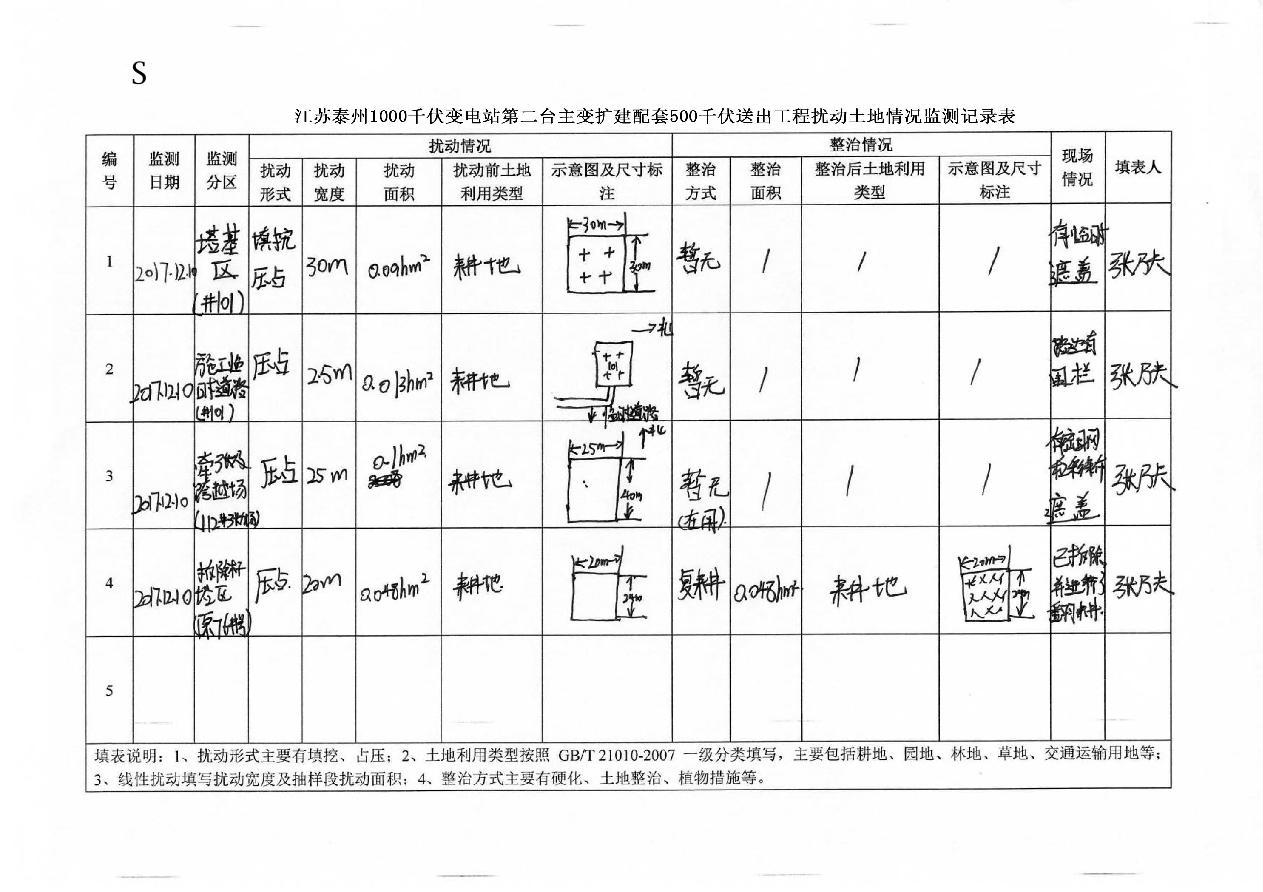 S
江苏泰州1000千伏变电站第二台主变扩建配套500千伏送出工程扰动土地情况监测记录表
编号 监测日期 监测分区 扰动情况 整治情况 现场情况 填表人
扰动形式 扰动宽度 扰动面积 扰动前土地利用类型 示意图及尺寸标注 整治方式 整治面积 整治后土地利用类型 示意图及尺寸标注
1 2017.12.10 塔基区(#101) 填挖压占 30m 0.09hm² 耕地 30m 30m 暂无 / / / 有临时遮盖 张乃夫
2 2017.12.10 施工临时道路(#101) 压占 2.5m 0.013hm² 耕地 北 101 临时道路 暂无 / / / 路边有围栏 张乃夫
3 2017.12.10 牵张及跨越场(112#张力场) 压占 25m 0.1hm² 耕地 北 25m 40m 暂无(在用) / / / 遮盖 张乃夫
4 2017.12.10 拆除杆塔区(原76#塔) 压占 20m 0.048hm² 耕地 20m 24m 复耕 0.048hm² 耕地 20m 24m 已拆除并进行了复耕 张乃夫
5
填表说明：1、扰动形式主要有填挖、占压；2、土地利用类型按照 GB/T 21010-2007 一级分类填写，主要包括耕地、园地、林地、草地、交通运输用地等；
3、线性扰动填写扰动宽度及抽样段扰动面积；4、整治方式主要有硬化、土地整治、植物措施等。